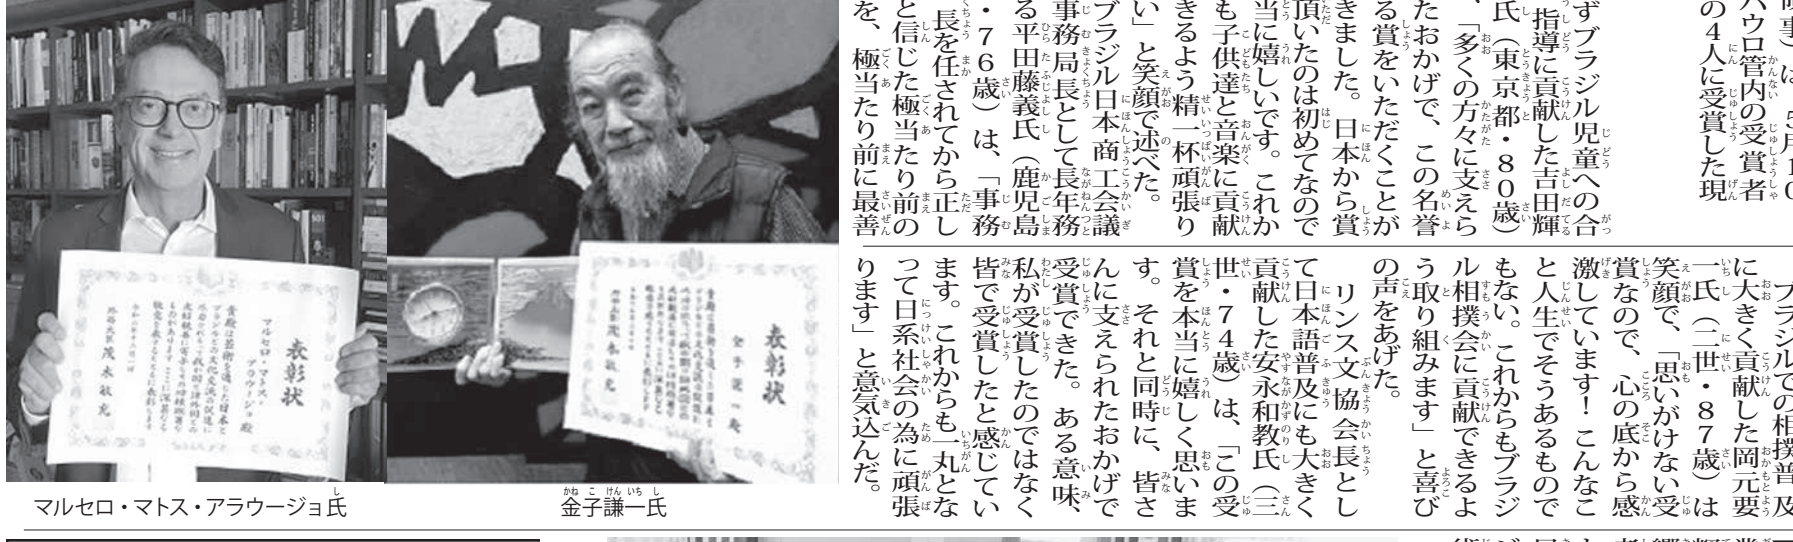 事）は、5月10
パウロ管内の受賞者
の４人に受賞した現
ずブラジル児童への合
指導に貢献した吉田輝
氏（東京都・８０歳）
、「多くの方々に支えら
たおかげで、この名誉
る賞をいただくことが
きました。日本から賞
頂いたのは初めてなので
当に嬉しいです。これか
も子供達と音楽に貢献
きるよう精一杯頑張り
い」と笑顔で述べた。
ブラジル日本商工会議
事務局長として長年務
る平田藤義氏（鹿児島
・７６歳）は、「事務
長を任されてから正し
と信じた極当たり前の
を、極当たり前に最善
ブラジルでの相撲普及
に大きく貢献した岡元要
一氏（二世・８７歳）は
笑顔で、「思いがけない受
賞なので、心の底から感
激しています！こんなこ
と人生でそうあるもので
もない。これからもブラジ
ル相撲会に貢献できるよ
う取り組みます」と喜び
の声をあげた。
リンス文協会長とし
て日本語普及にも大きく
貢献した安永和教氏（三
世・７４歳）は、「この受
賞を本当に嬉しく思いま
す。それと同時に、皆さ
んに支えられたおかげで
受賞できた。ある意味、
私が受賞したのではなく
皆で受賞したと感じてい
ます。これからも一丸とな
って日系社会の為に頑張
ります」と意気込んだ。
表彰状
マルセロ・マトス・
アラウージョ殿
茂木敏充
表彰状
金子謙一殿
茂木敏充
マルセロ・マトス・アラウージョ氏
金子謙一氏